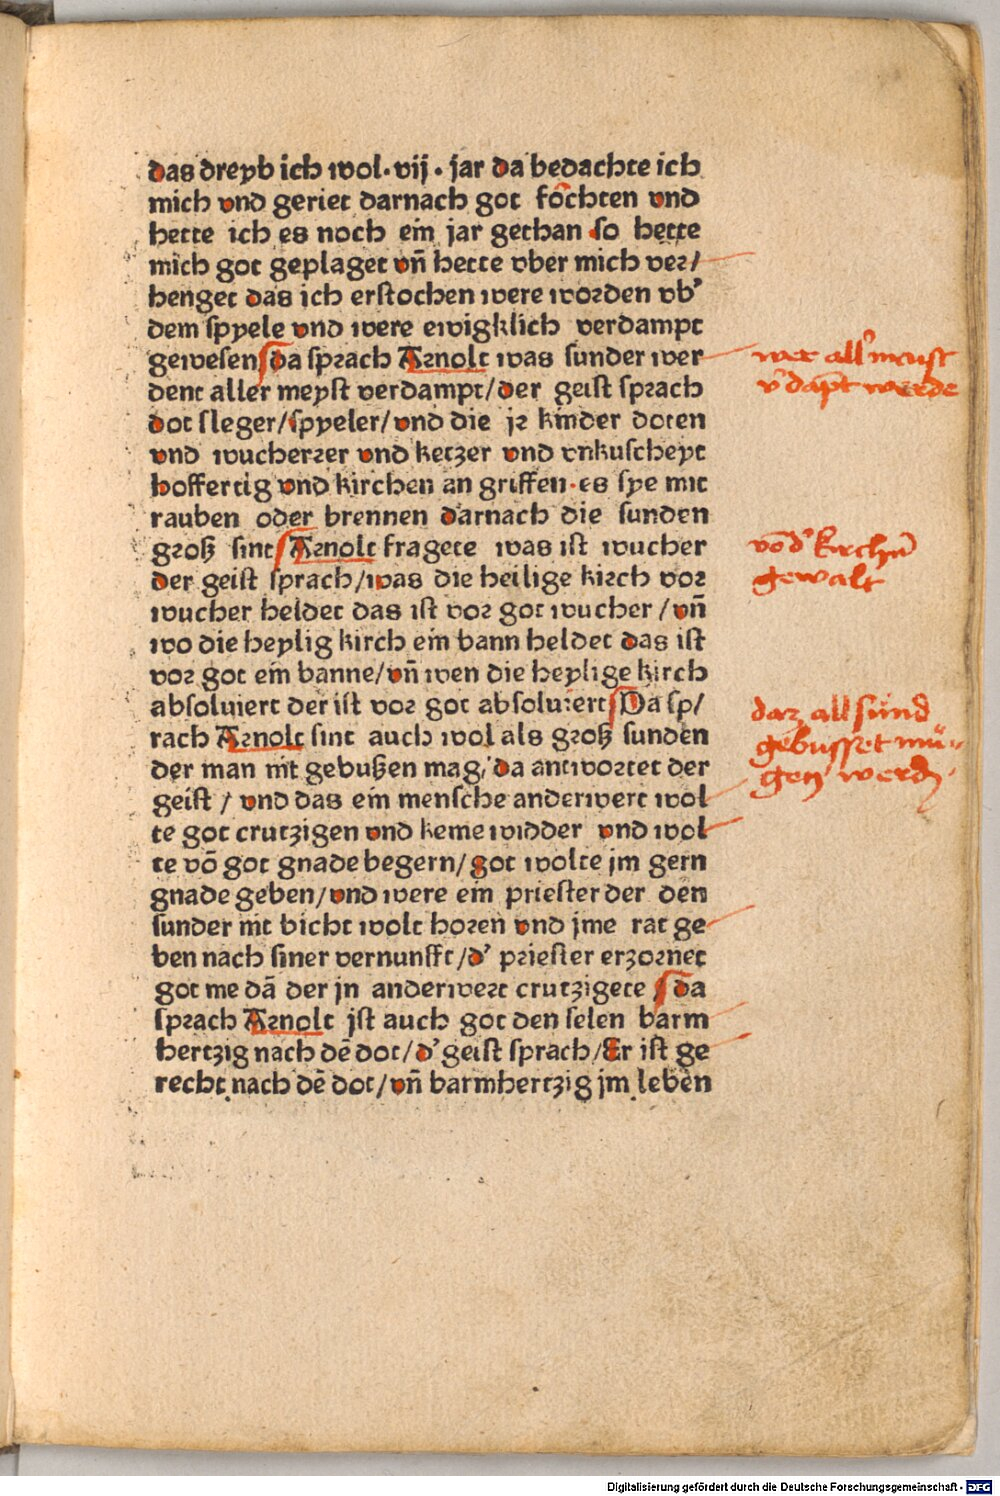 das dreyb ich wol·vij·jar da bedachte ich
mich vnd geriet darnach got fochten vnd
hette ich es noch ein jar gethan so hette
mich got geplaget vn̄ hette vber mich ver/
henget das ich erstochen were worden vb'
dem spyele vnd were ewigklich verdampt
gewesen da sprach Arnolt was sunder wer
dent aller meyst verdampt/der geist sprach
dot sleger/spyeler/vnd die jr kinder doten
vnd wucherrer vnd ketzer vnd vnkuscheyt
hoffertig vnd kirchen an griffen·es sye mit
rauben oder brennen darnach die sunden
groß sint Arnolt fragete was ist wucher
der geist sprach/was die heilige kirch vor
wucher heldet das ist vor got wucher/vn̄
wo die heylig kirch ein bann heldet das ist
vor got ein banne/vn̄ wen die heylige kirch
absoluiert der ist vor got absoluiert Da sp/
rach Arnolt sint auch wol als groß sunden
der man nit gebußen mag/da antwortet der
geist/vnd das ein mensche anderwert wol
te got crutzigen vnd keme widder vnd wol
te vō got gnade begern/got wolte jm gern
gnade geben/vnd were ein priester der den
sunder nit bicht wolt horen vnd jme rat ge
ben nach siner vernunfft/d' priester erzornet
got me dā der jn anderwert crutzigete da
sprach Arnolt jst auch got den selen barm
hertzig nach dē dot/d' geist sprach/Er ist ge
recht nach dē dot/vn̄ barmhertzig jm leben
wer all' meist
v'dāpt werde
vō d' kirchn̄
gewalt
daz all sünd
gebusset mü-
gen werdn
Digitalisierung gefördert durch die Deutsche Forschungsgemeinschaft - DFG